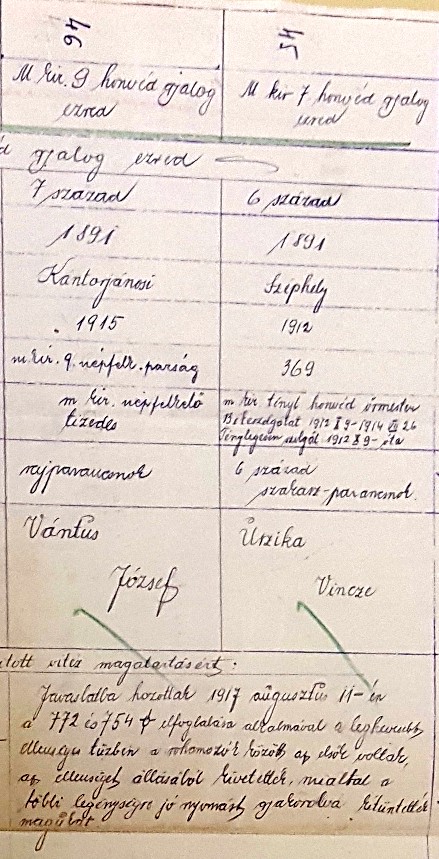 46
45
M kir. 9 honvéd gyalog
ezred
M kir 7 honvéd gyalog
ezred
gyalog ezred
7 század
6 század
1891
1891
Kántorjánosi
Széphely
1915
1912
m. kir. 9. népfelk. parság
369
m kir. népfelkelő
tizedes
m kir tényl honvéd örmester
1912 X 9-1914 VII 26
Ténylegesen szolgál 1912 X 9- óta
rajparancsnok
6 század
szakasz-parancsnok
Vántus
József
Urzika
Vincze
vitéz magatartásért:
Javaslatba hozottak 1917 augusztus 11-én
a 772 és 754 elfoglalása alkalmával a legkevesebb
ellenséges tüzben a rohamozók között az elsők voltak,
az ellenséget állásából kivetették, miáltal a
többi legénységre jó nyomást gyakorolva kitüntették
magukat